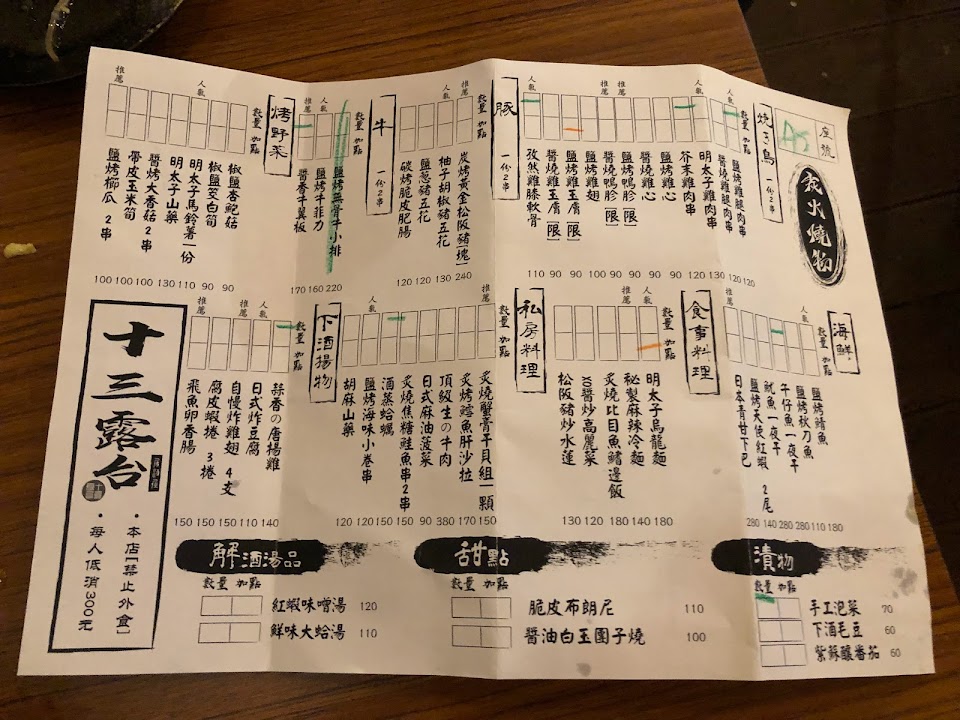 座號
A5
炭火燒物
焼き鳥 一份2串
鹽烤雞腿肉串 120
醬燒雞腿肉串 120
明太子雞肉串 130
芥末雞肉串 120
鹽烤雞心 90
醬燒雞心 90
鹽烤鴨胗[限] 90
醬燒鴨胗[限] 90
鹽烤雞翅 100
鹽烤雞玉膚[限] 90
醬燒雞玉膚[限] 90
孜然雞膝軟骨 110
豚 一份2串
炭烤黃金松阪豬[塊] 240
柚子胡椒豬五花 130
鹽蔥豬五花 120
碳烤脆皮肥腸 120
牛 一份2串
鹽烤無骨牛小排 220
鹽烤牛菲力 160
醬香牛翼板 170
烤野菜
椒鹽杏鮑菇 90
椒鹽茭白筍 90
明太子馬鈴薯一份 110
明太子山藥 130
醬烤大香菇2串 100
帶皮玉米筍 100
鹽烤櫛瓜 2串 100
數量 加點
推薦
人氣
海鮮
鹽烤鯖魚 180
鹽烤秋刀魚 110
午仔魚一夜干 280
魷魚一夜干 280
鹽烤天使紅蝦 2尾 140
日本青甘下巴 280
食事料理
明太子烏龍麵 180
秘製麻辣冷麵 140
炙燒比目魚鰭邊飯 180
XO醬炒高麗菜 120
松阪豬炒水蓮 130
私房料理
炙燒蟹膏干貝組一顆 150
炙烤鱈魚肝沙拉 170
頂級生の牛肉 380
日式麻油菠菜 90
炙燒焦糖鮭魚串2串 150
酒蒸蛤蠣 150
鹽烤海味小卷串 120
胡麻山藥 120
下酒揚物
蒜香の唐揚雞 140
日式炸豆腐 110
自慢炸雞翅 4支 150
腐皮蝦捲 3捲 150
飛魚卵香腸 150
十三露台
・本店「禁止外食」
・每人低消300元
解酒湯品
數量 加點
紅蝦味噌湯 120
鮮味大蛤湯 110
甜點
數量 加點
脆皮布朗尼 110
醬油白玉團子燒 100
漬物
數量 加點
手工泡菜 70
下酒毛豆 60
紫蘇釀番茄 60